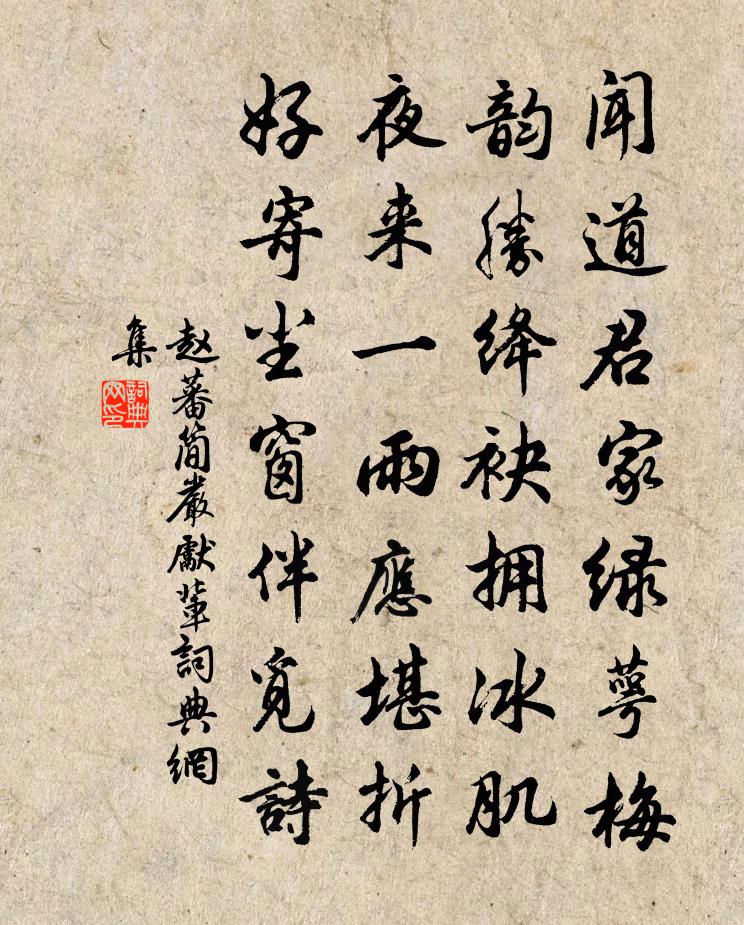 闻道君家绿萼梅
韵勝绛袂拥冰肌
夜来一雨應堪折
好寄坐窗伴觅詩
赵蕃简嚴獻輩詞典網
集
詞典网印